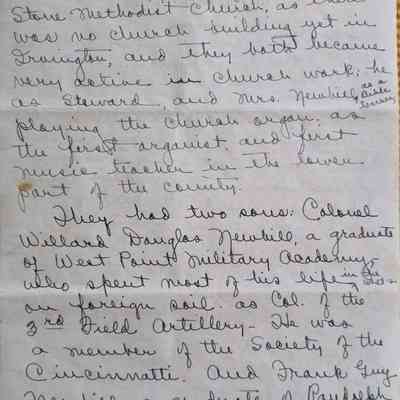 Stone Methodist Church, as there
was no church building yet in
Irvington, and they both became
very active in church work: he
as Steward, and Mrs. Newbill, as a
playing the church organ: as
the first organist, and first
music teacher in the lower
part of the county.
They had two sons: Colonel
Willard Douglas Newbill, a graduate
of West Point Military Academy,
who spent most of his life, in the
on foreign soil: as Col. of the
3rd Field Artillery - He was
a member of the Society of the
Cincinnatti. And Frank Guy
Newbill a graduate of Randolph